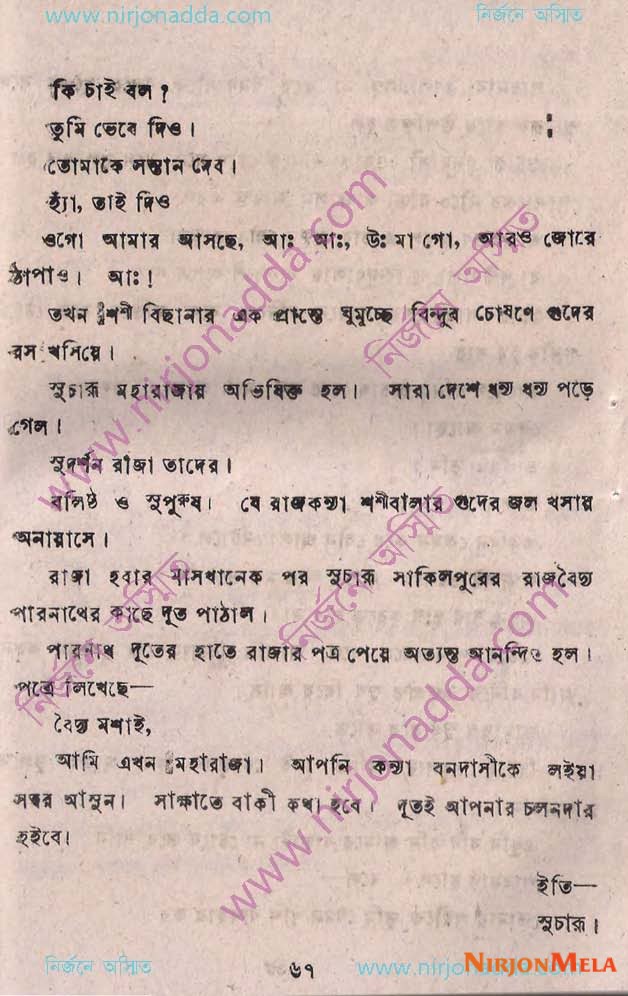 www.nirjonadda.com নির্জনে অস্মিত
কি চাই বল ?
তুমি ভেবে দিও ।
তোমাকে সন্তান দেব ।
হ্যাঁ, তাই দিও
ওগো আমার আসছে, আঃ আঃ, উঃ মা গো, আরও জোরে
ঠাপাও । আঃ !
তখন শশী বিছানার এক প্রান্তে ঘুমুচ্ছে । বিন্দুর চোষণে গুদের
রস খসিয়ে ।
সুচারু মহারাজায় অভিষিক্ত হল । সারা দেশে ধন্য ধন্য পড়ে
গেল ।
সুদর্শন রাজা তাদের ।
বলিষ্ঠ ও সুপুরুষ । যে রাজকন্যা শশীবালার গুদের জল খসায়
অনায়াসে ।
রাজা হবার মাসখানেক পর সুচারু সাকিলপুরের রাজবৈদ্য
পারনাথের কাছে দূত পাঠাল ।
পারনাথ দূতের হাতে রাজার পত্র পেয়ে অত্যন্ত আনন্দিত হল ।
পত্রে লিখেছে—
বৈদ্য মশাই,
আমি এখন মহারাজা । আপনি কন্যা বনদাসীকে লইয়া
সত্বর আসুন । সাক্ষাতে বাকী কথা হবে । দূতই আপনার চলনদার
হইবে ।
ইতি—
সুচারু ।
নির্জনে অস্মিত ৬৭ www.nirjonadda.com
NIRJONMELA
www.nirjonadda.com
নির্জনে অস্মিত
নির্জনে অস্মিত
নির্জনে অস্মিত
www.nirjonadda.com